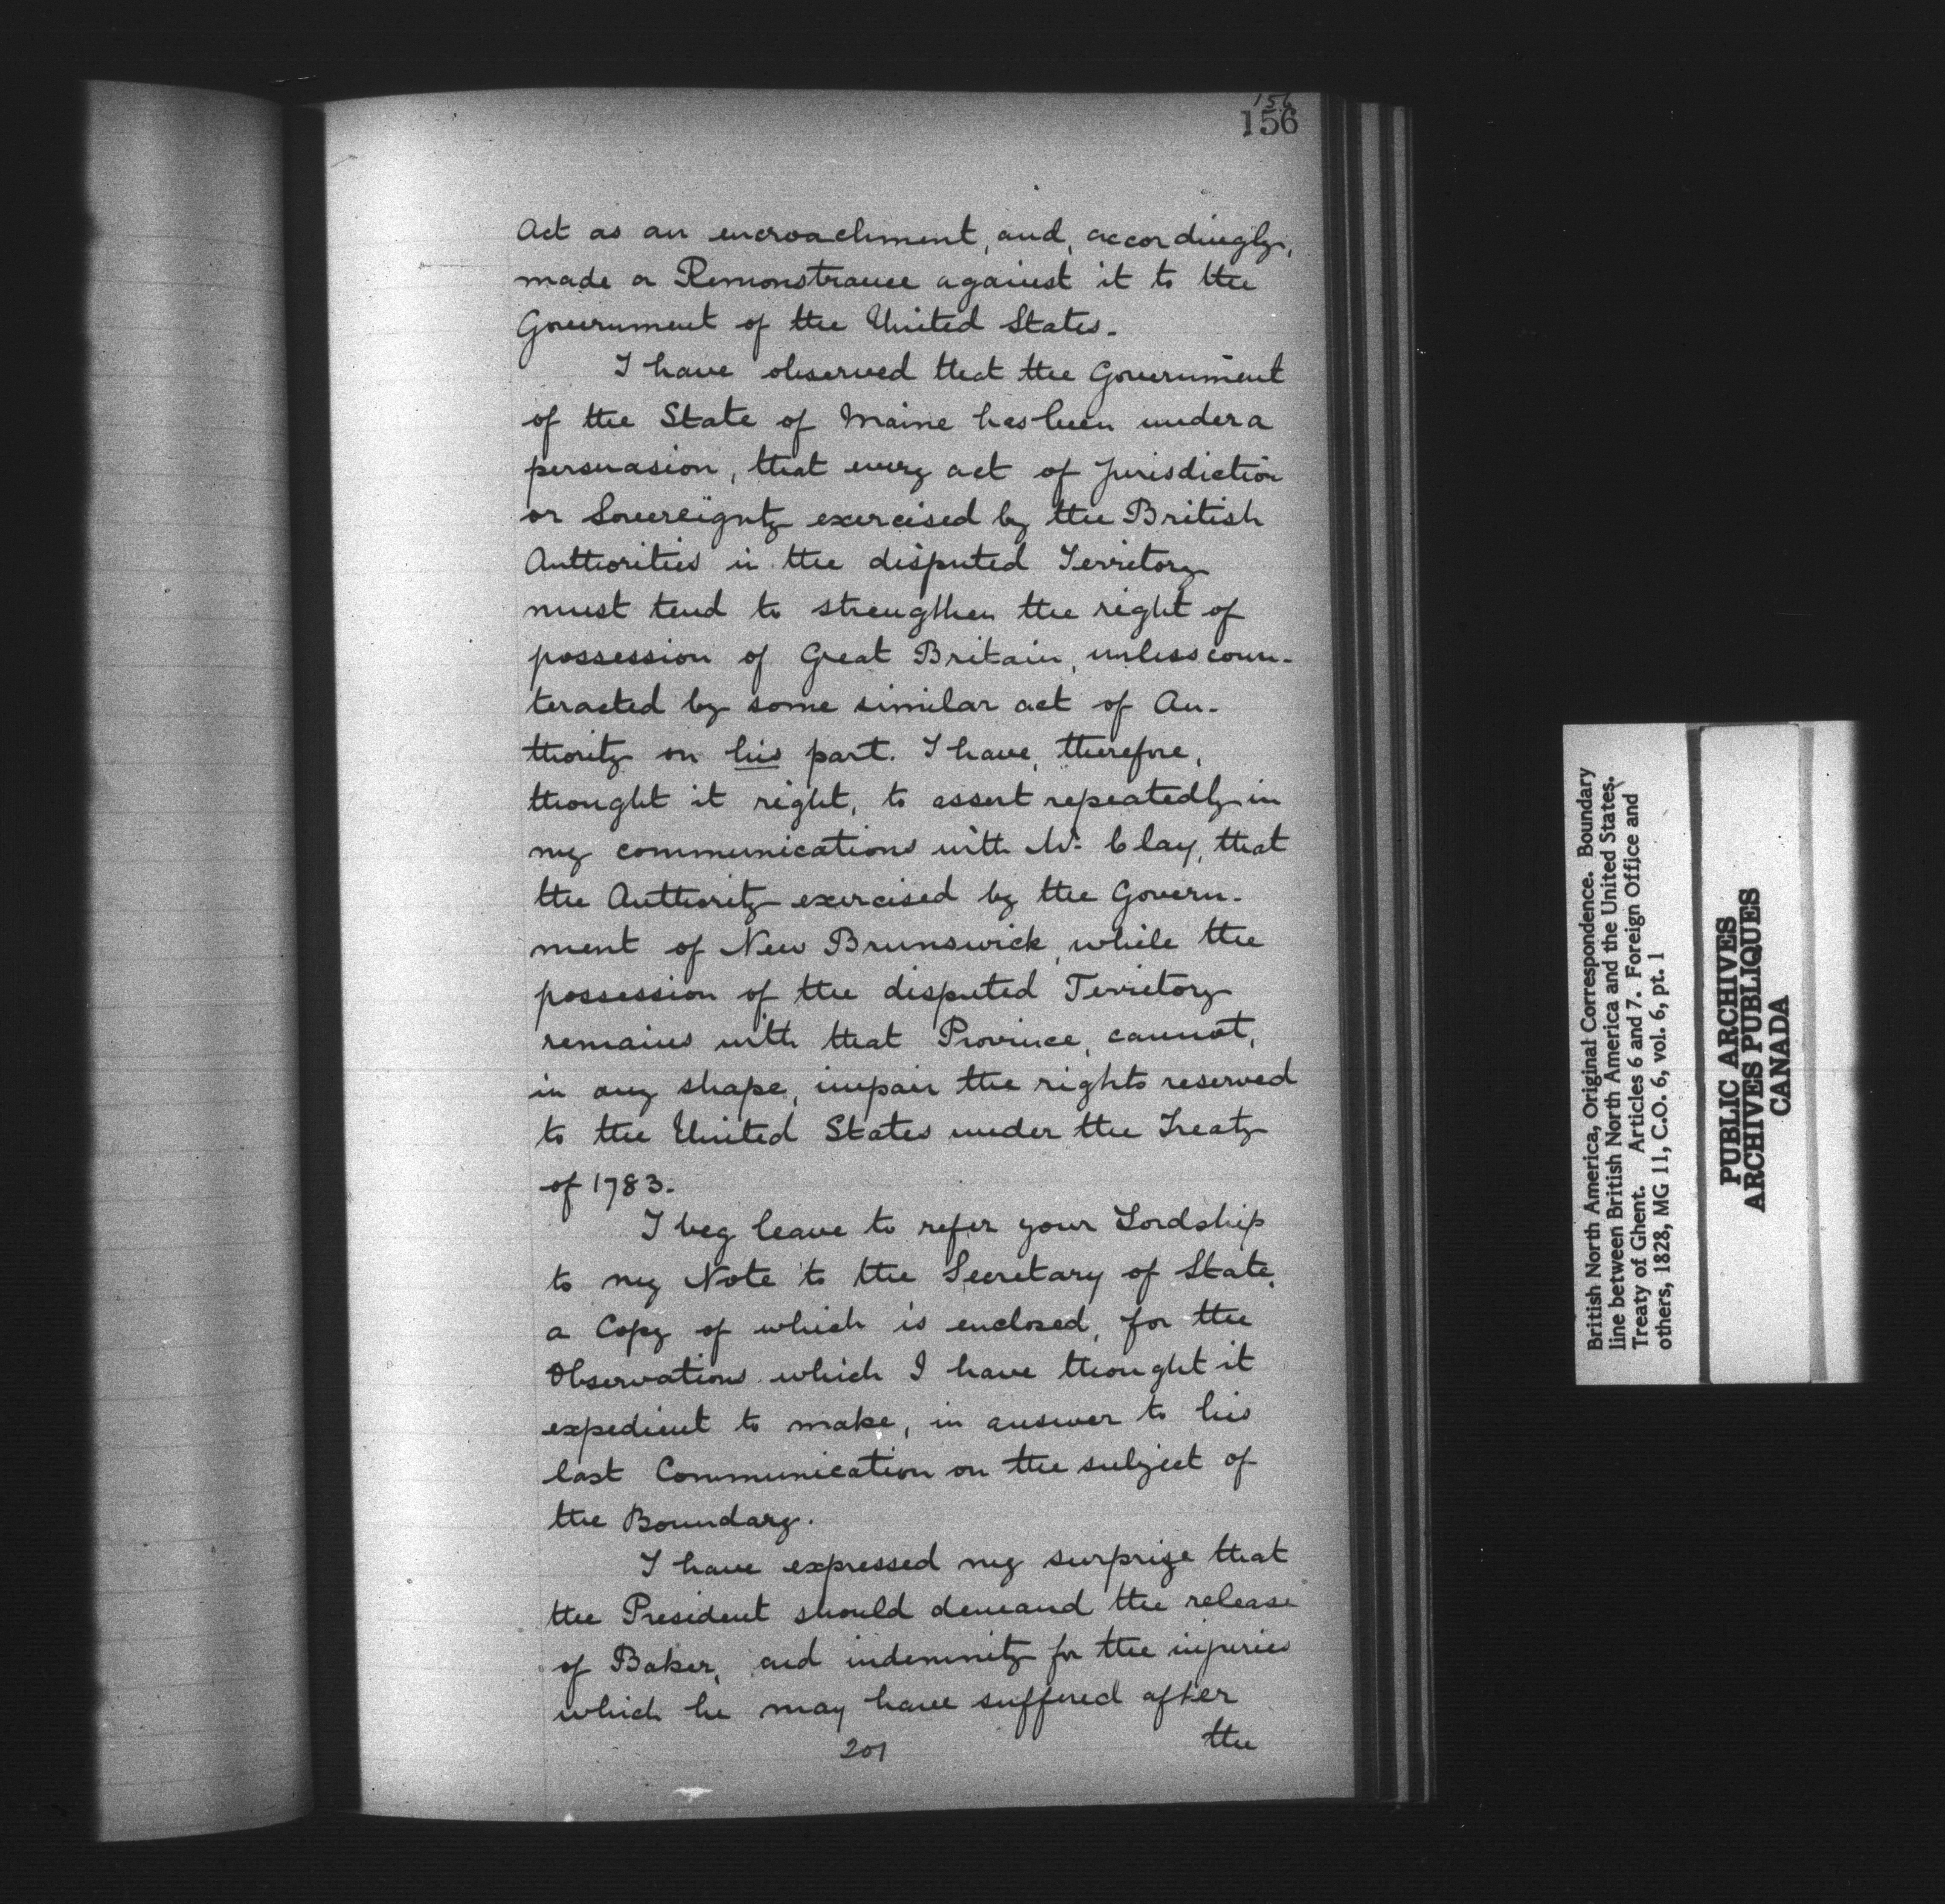 156
156
Act as an encroachment, and, accordingly,
made a Remonstrance against it to the
Government of the United States.
I have observed that the Government
of the State of Maine has been under a
persuasion, that every act of Jurisdiction
or Sovereignty exercised by the British
Authorities in the disputed Territory
must tend to strengthen the right of
possession of Great Britain, unless coun-
teracted by some similar act of Au-
thority on his part. I have, therefore,
thought it right, to assert repeatedly in
my communications with Mr. Clay, that
the Authority exercised by the Govern-
ment of New Brunswick, while the
possession of the disputed Territory
remains with that Province, cannot,
in any shape, impair the rights reserved
to the United States under the Treaty
of 1783.
I beg leave to refer your Lordship
to my Note to the Secretary of State,
a Copy of which is enclosed, for the
Observations which I have thought it
expedient to make, in answer to his
last Communication on the subject of
the Boundary.
I have expressed my surprize that
the President should demand the release
of Baker, and indemnity for the injuries
which he may have suffered after
the
201
British North America, Original Correspondence. Boundary
line between British North America and the United States.
Treaty of Ghent. Articles 6 and 7. Foreign Office and
others, 1828, MG 11, C.O. 6, vol. 6, pt. 1
PUBLIC ARCHIVES
ARCHIVES PUBLIQUES
CANADA